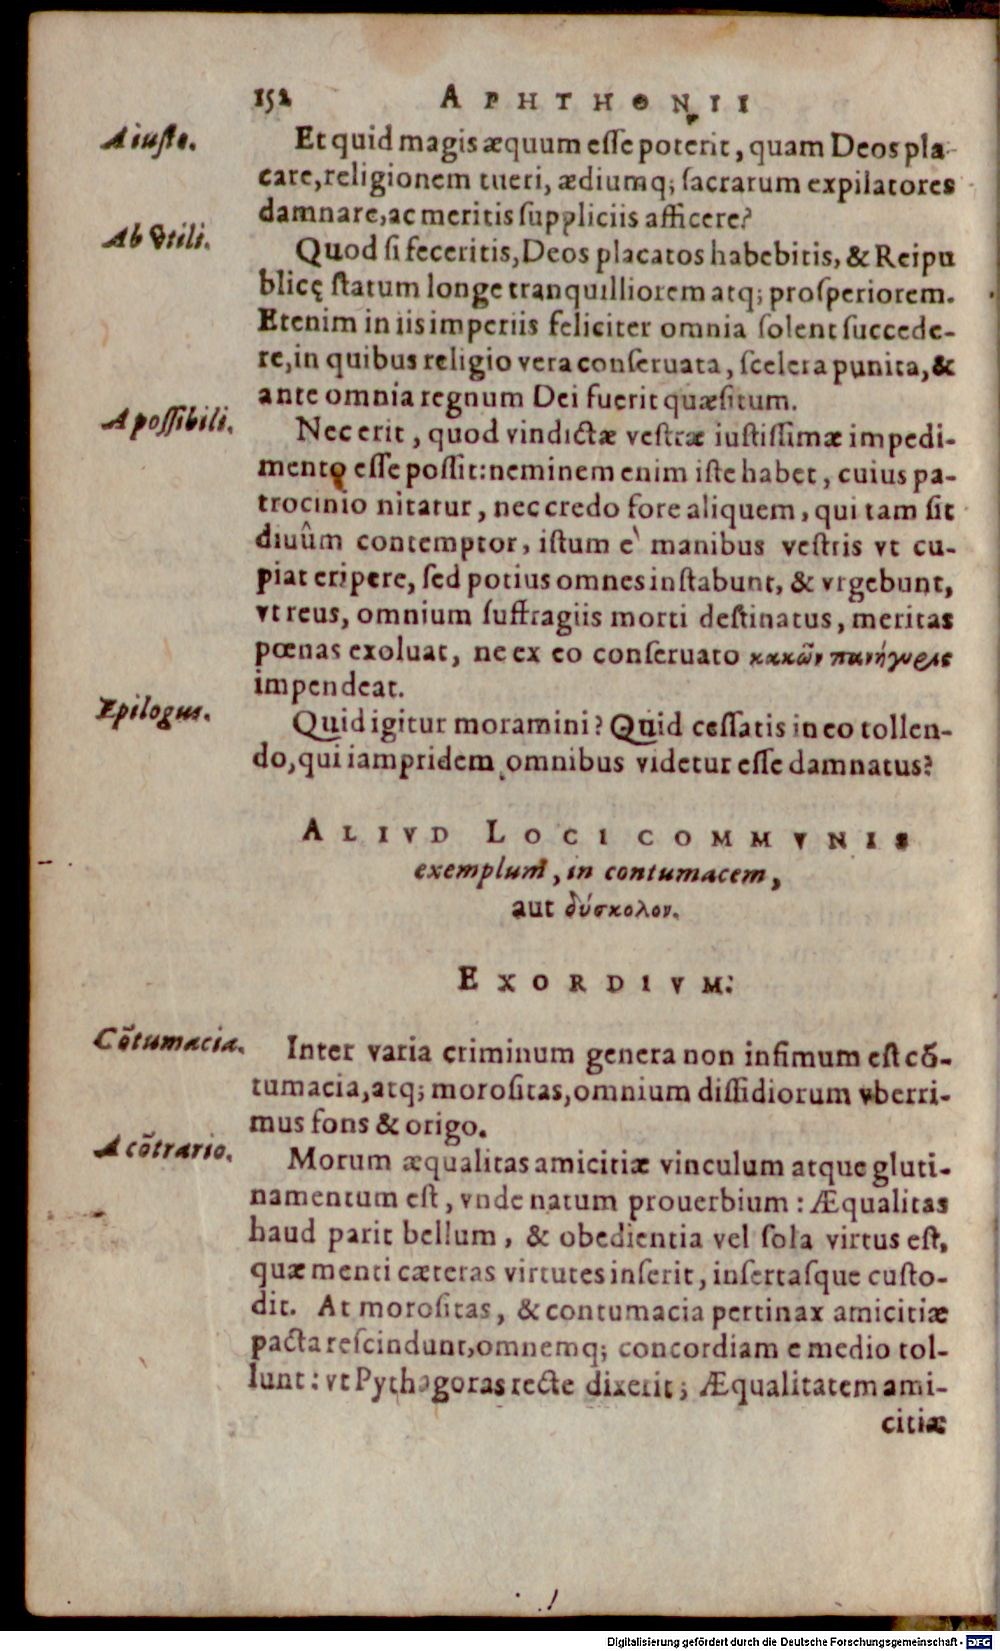 152 APHTHONII
A iusto.
Et quid magis æquum esse poterit, quam Deos pla-
care, religionem tueri, ædiumq; sacrarum expilatores
damnare, ac meritis suppliciis afficere?
Ab vtili.
Quod si feceritis, Deos placatos habebitis, & Reipu
blicę statum longe tranquilliorem atq; prosperiorem.
Etenim in iis imperiis feliciter omnia solent succede-
re, in quibus religio vera conseruata, scelera punita, &
ante omnia regnum Dei fuerit quæsitum.
A possibili.
Nec erit, quod vindictæ vestræ iustissimæ impedi-
mento esse possit: neminem enim iste habet, cuius pa-
trocinio nitatur, nec credo fore aliquem, qui tam sit
diuûm contemptor, istum e manibus vestris vt cu-
piat eripere, sed potius omnes instabunt, & vrgebunt,
vt reus, omnium suffragiis morti destinatus, meritas
pœnas exoluat, ne ex eo conseruato κακῶν πανήγυρις
impendeat.
Epilogus.
Quid igitur moramini? Quid cessatis in eo tollen-
do, qui iampridem omnibus videtur esse damnatus?
ALIVD LOCI COMMVNIS
exemplum, in contumacem,
aut δύσκολον.
EXORDIVM.
Cõtumacia.
Inter varia criminum genera non infimum est cõ-
tumacia, atq; morositas, omnium dissidiorum vberri-
mus fons & origo.
A cõtrario.
Morum æqualitas amicitiæ vinculum atque gluti-
namentum est, vnde natum prouerbium: Æqualitas
haud parit bellum, & obedientia vel sola virtus est,
quæ menti cæteras virtutes inserit, insertasque custo-
dit. At morositas, & contumacia pertinax amicitiæ
pacta rescindunt, omnemq; concordiam e medio tol-
lunt: vt Pythagoras recte dixerit; Æqualitatem ami-
citiæ
Digitalisierung gefördert durch die Deutsche Forschungsgemeinschaft - DFG